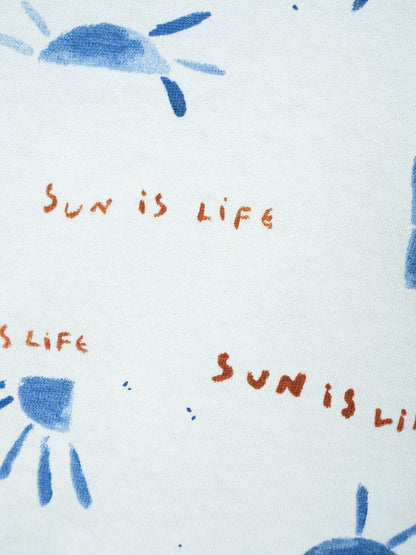 SUN iS LiFE
S LiFE
SUN iS Li